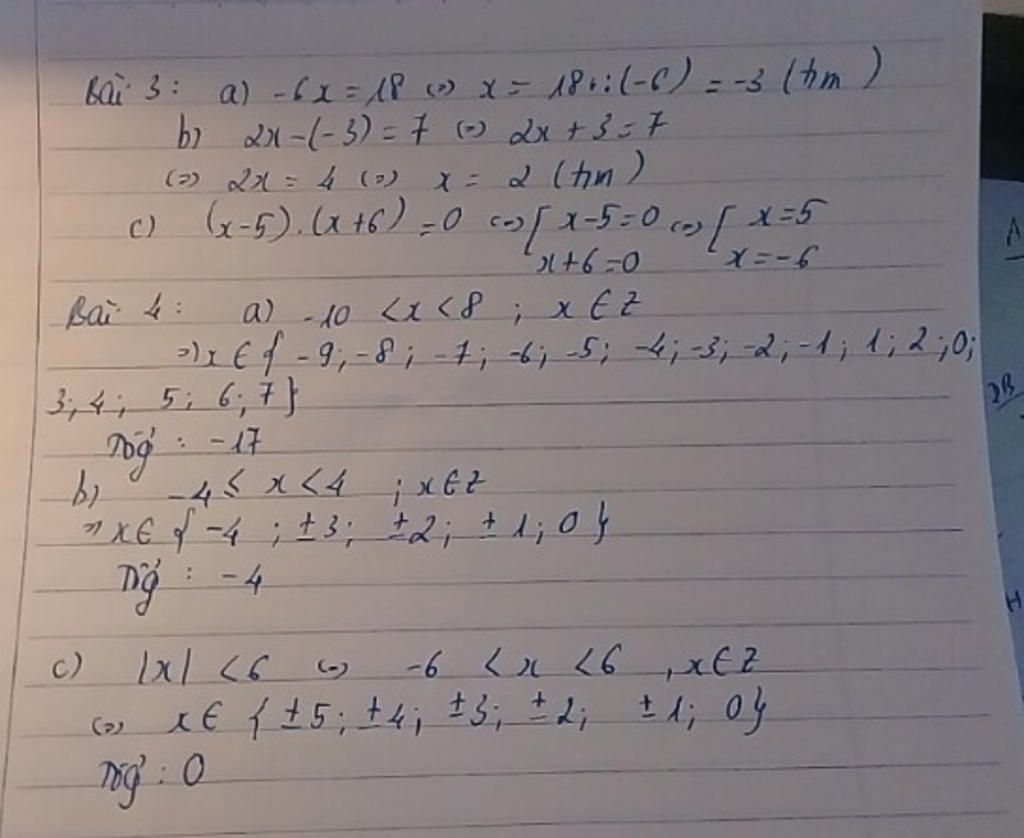 Bài 3: a) -6x = 18 <=> x = 18 : (-6) = -3 (tm)
b) 2x - (-3) = 7 <=> 2x + 3 = 7
<=> 2x = 4 <=> x = 2 (tm)
c) (x-5).(x+6) = 0 <=> [ x-5=0 <=> [ x=5
x+6=0 x=-6
Bài 4: a) -10 < x < 8 ; x ∈ Z
=> x ∈ { -9; -8; -7; -6; -5; -4; -3; -2; -1; 1; 2; 0;
3; 4; 5; 6; 7}
Tổg : -17
b) -4 ≤ x < 4 ; x ∈ Z
=> x ∈ { -4 ; ±3; ±2; ±1; 0 }
Tổg : -4
c) |x| < 6 <=> -6 < x < 6 , x ∈ Z
<=> x ∈ { ±5; ±4; ±3; ±2; ±1; 0}
Tổg : 0